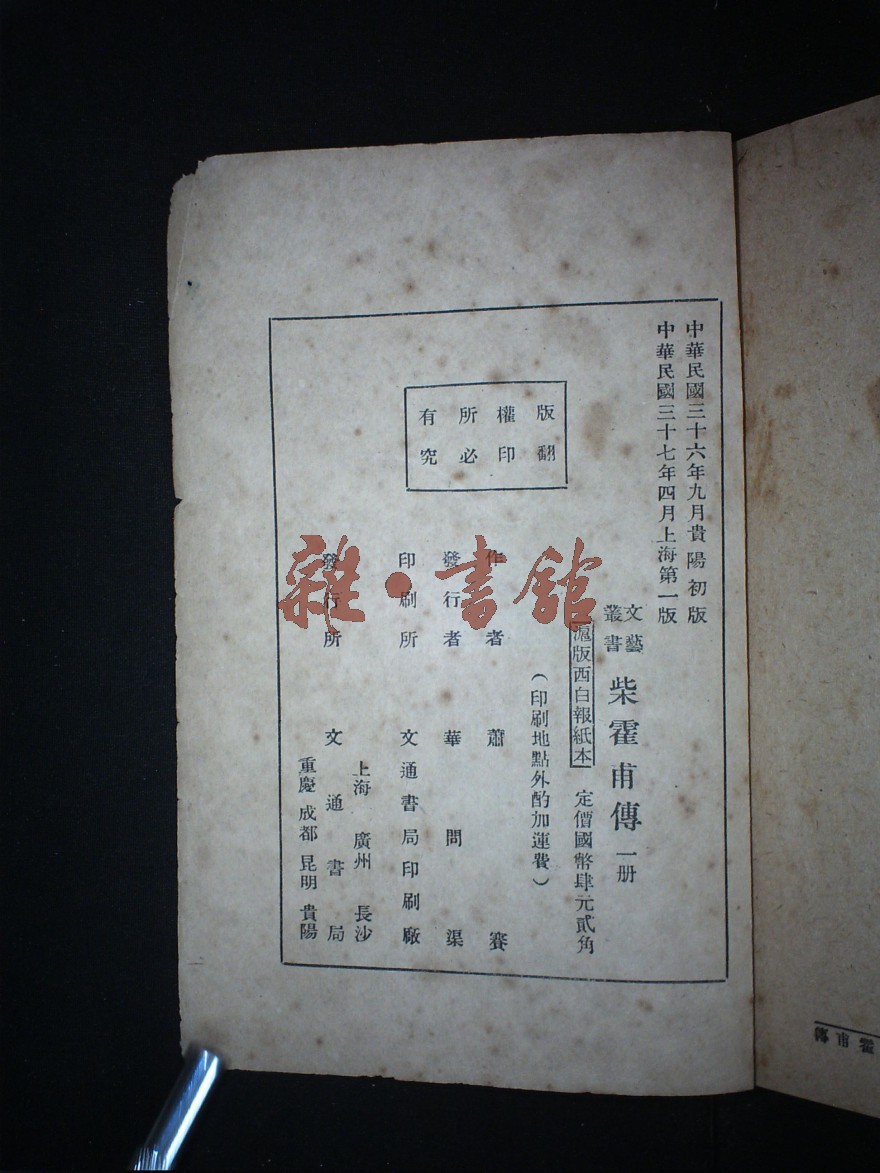 中華民國三十六年九月貴陽初版
中華民國三十七年四月上海第一版
文藝叢書 柴霍甫傳 一册
滬版西白報紙本 定價國幣肆元貳角
（印刷地點外酌加運費）
版權所有
翻印必究
作者 蕭賽
發行者 華問渠
印刷所 文通書局印刷廠
發行所 文通書局
上海 廣州 長沙
重慶 成都 昆明 貴陽
雜·書館
霍甫傳